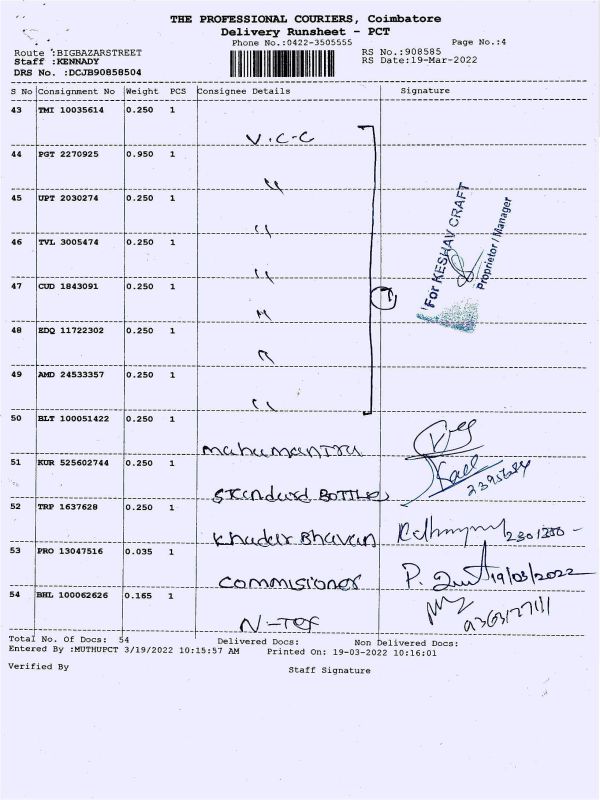 THE PROFESSIONAL COURIERS, Coimbatore
Delivery Runsheet - PCT
Phone No.:0422-3505555 Page No.:4
Route :BIGBAZARSTREET RS No.:908585
Staff :KENNADY RS Date:19-Mar-2022
DRS No. :DCJB90858504
S No Consignment No Weight PCS Consignee Details Signature
43 TMI 10035614 0.250 1
V.C-C
44 PGT 2270925 0.950 1
"
45 UPT 2030274 0.250 1
"
46 TVL 3005474 0.250 1
"
47 CUD 1843091 0.250 1
"
48 EDQ 11722302 0.250 1
"
49 AMD 24533357 0.250 1
"
7
For KESHAV CRAFT
Proprietor / Manager
50 BLT 100051422 0.250 1
mahamantra
51 KUR 525602744 0.250 1
Standard BOTTles
52 TRP 1637628 0.250 1
Khadar Bhavan
53 PRO 13047516 0.035 1
Commisioner P. 19/03/2022
54 BHL 100062626 0.165 1
N-Tex
Total No. Of Docs: 54 Delivered Docs: Non Delivered Docs:
Entered By :MUTHUPCT 3/19/2022 10:15:57 AM Printed On: 19-03-2022 10:16:01
Verified By Staff Signature